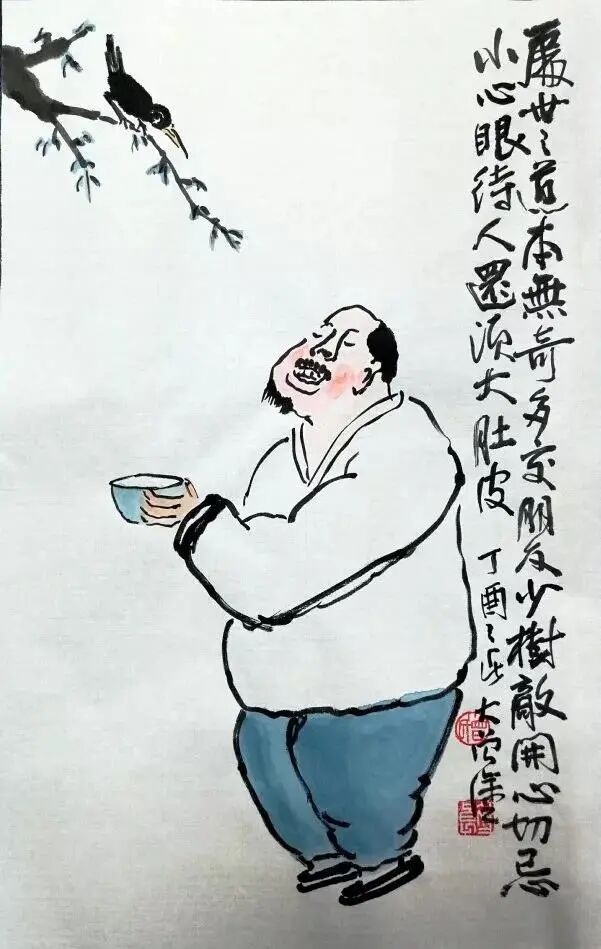 處世之道本無奇多交朋友少樹敵開心切忌
小心眼待人還須大肚皮 丁酉之